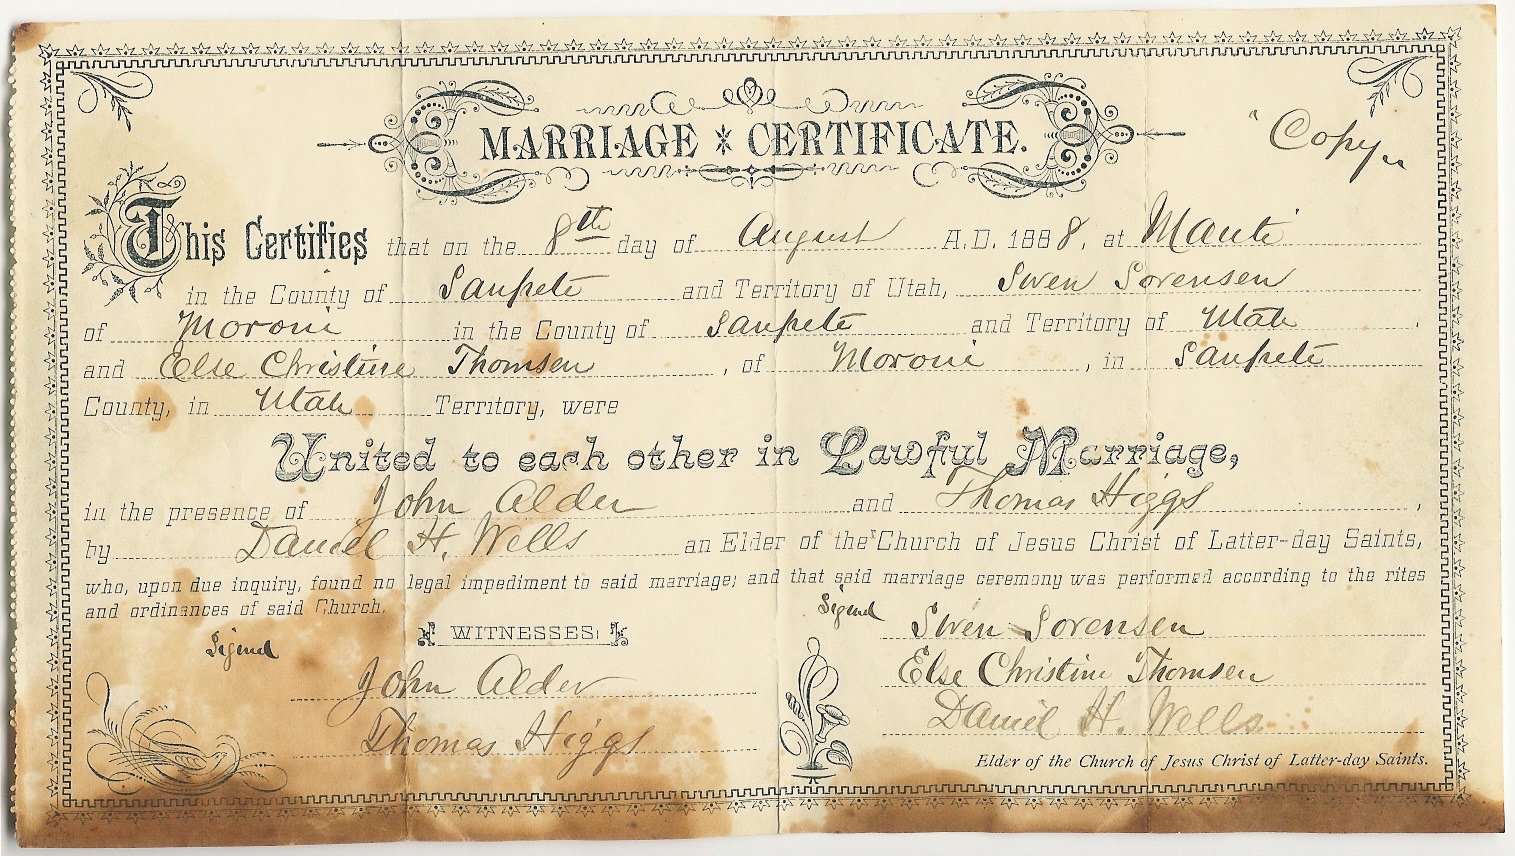 MARRIAGE * CERTIFICATE.
"Copy"
This Certifies that on the 8th day of August A.D. 1888, at Manti
in the County of Sanpete and Territory of Utah, Swen Sorensen
of Moroni in the County of Sanpete and Territory of Utah.
and Else Christine Thomsen, of Moroni, in Sanpete
County, in Utah Territory, were
United to each other in Lawful Marriage,
in the presence of John Alder and Thomas Higgs,
by Daniel H. Wells an Elder of the Church of Jesus Christ of Latter-day Saints,
who, upon due inquiry, found no legal impediment to said marriage; and that said marriage ceremony was performed according to the rites
and ordinances of said Church.
Signed
WITNESSES:
John Alder
Thomas Higgs
Signed
Swen Sorensen
Else Christine Thomsen
Daniel H. Wells
Elder of the Church of Jesus Christ of Latter-day Saints.